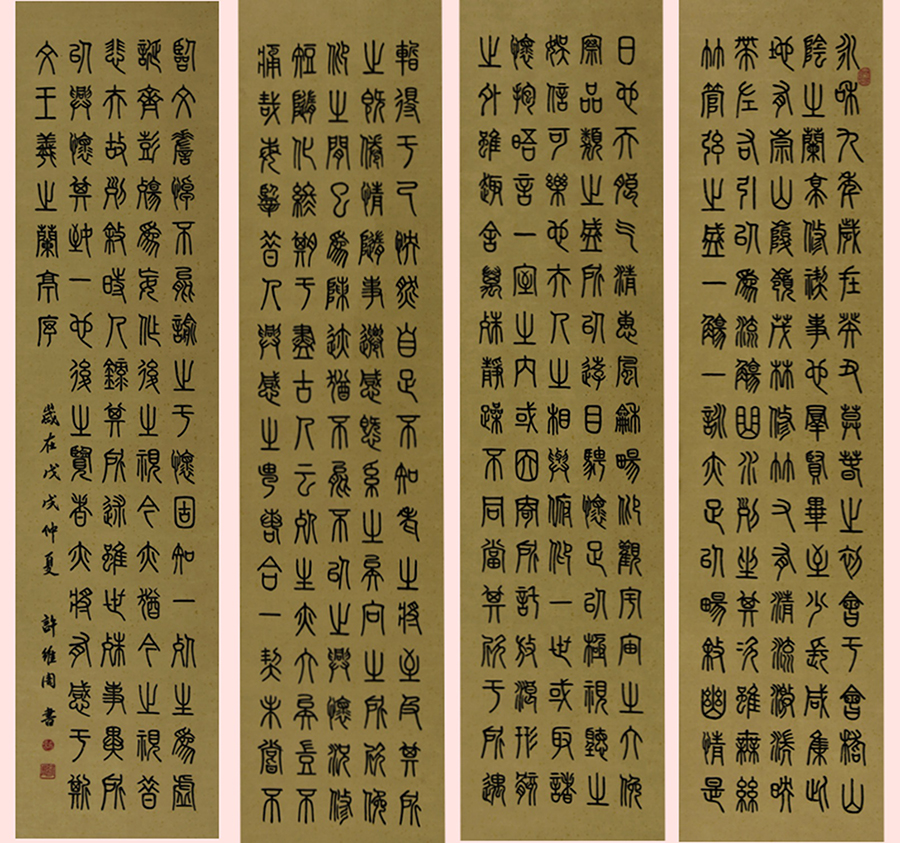 永和九年歲在癸丑莫春之初會于會稽山
陰之蘭亭修禊事也羣賢畢至少長咸集此
地有崇山峻嶺茂林修竹又有清流激湍映
帶左右引以為流觴曲水列坐其次雖無絲
竹管弦之盛一觴一詠亦足以暢敘幽情是
日也天朗气清惠風龢暢仰觀宇宙之大俛
察品類之盛所以遊目騁懷足以極視聽之
娛信可樂也夫人之相與俯仰一世或取諸
懷抱晤言一室之內或因寄所託放浪形骸
之外雖趣舍萬殊靜躁不同當其欣于所遇
暫得于己快然自足不知老之將至及其所
之既倦情隨事遷感慨系之矣向之所欣俛
仰之間已為陳迹猶不能不以之興懷況修
短隨化終期于盡古人云死生亦大矣豈不
痛哉每擥昔人興感之由若合一契未嘗不
臨文嗟悼不能諭之于懷固知一死生為虛
誕齊彭殤為妄作後之視今亦猶今之視昔
悲夫故列敘時人錄其所述雖世殊事異所
以興懷其致一也後之賢者亦將有感于斯
文王羲之蘭亭序
歲在戊戌仲夏 許維周書